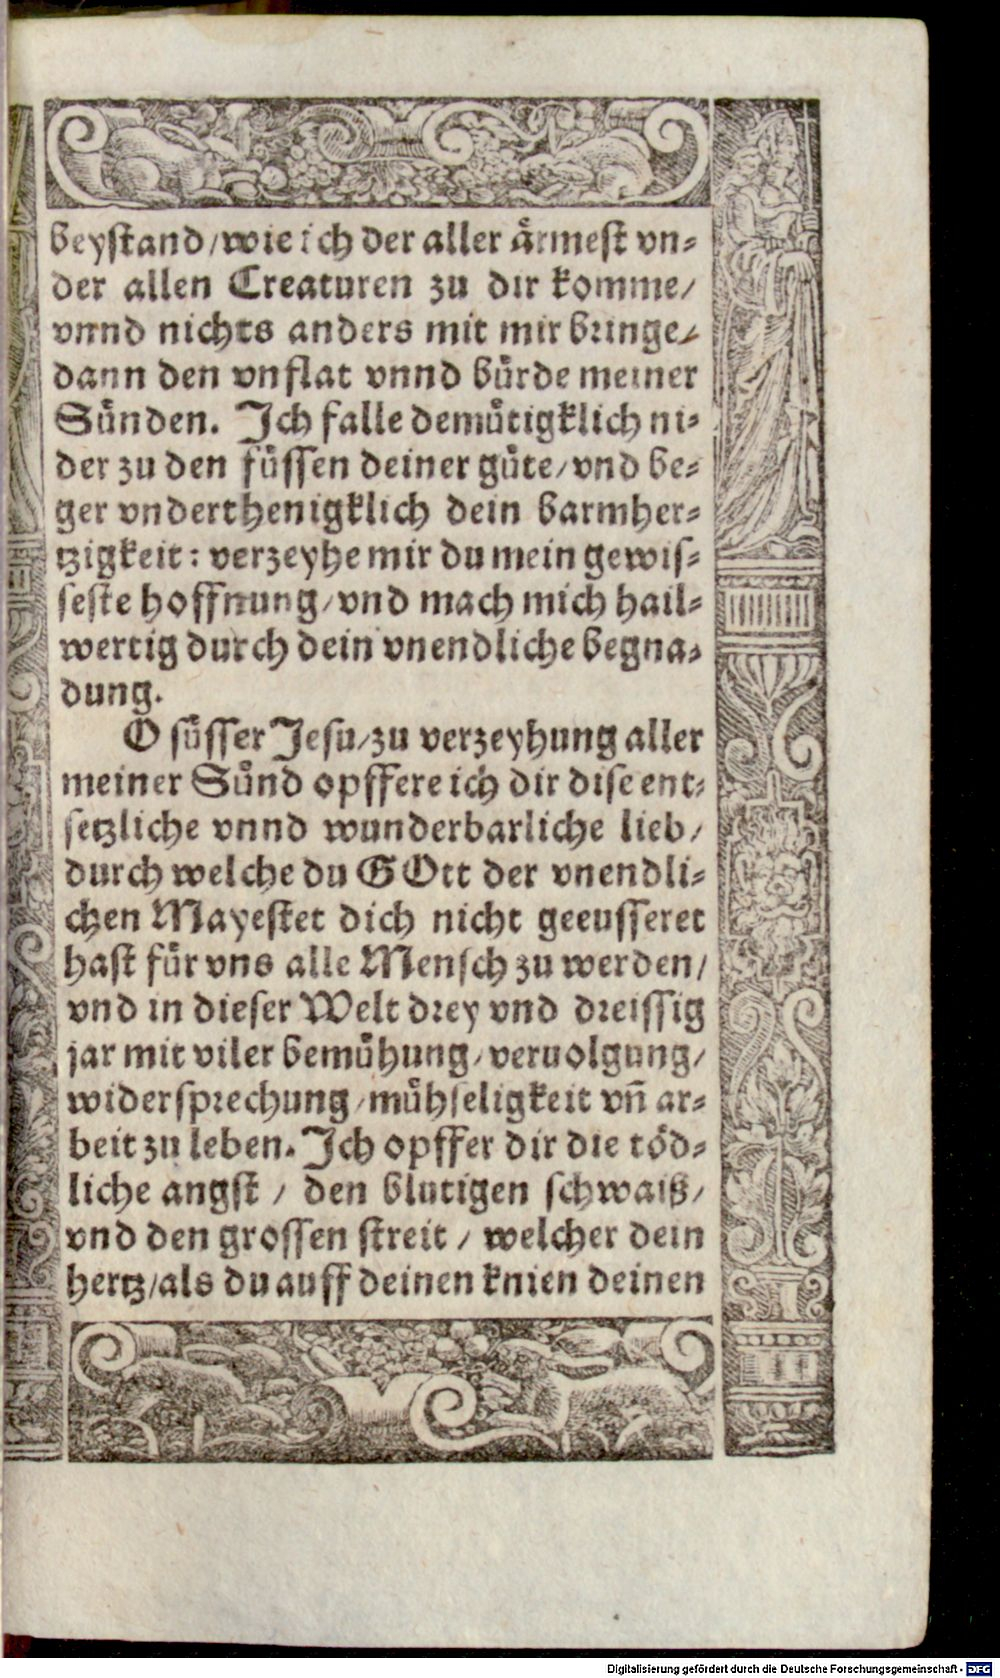 beystand/wie ich der aller aͤrmest vn⸗
der allen Creaturen zu dir komme/
vnnd nichts anders mit mir bringe/
dann den vnflat vnnd buͤrde meiner
Suͤnden. Ich falle demuͤtigklich ni⸗
der zu den fuͤssen deiner guͤte/vnd be⸗
ger vnderthenigklich dein barmher⸗
tzigkeit: verzeyhe mir du mein gewis⸗
seste hoffnung/vnd mach mich hail⸗
wertig durch dein vnendliche begna⸗
dung.
O suͤsser Jesu/zu verzeyhung aller
meiner Suͤnd opffere ich dir dise ent⸗
setzliche vnnd wunderbarliche lieb/
durch welche du GOtt der vnendli⸗
chen Mayestet dich nicht geeusseret
hast fuͤr vns alle Mensch zu werden/
vnd in dieser Welt drey vnd dreissig
jar mit viler bemuͤhung/veruolgung/
widersprechung/muͤhseligkeit vn̄ ar⸗
beit zu leben. Ich opffer dir die toͤd⸗
liche angst / den blutigen schwaiß/
vnd den grossen streit / welcher dein
hertz/als du auff deinen knien deinen
Digitalisierung gefördert durch die Deutsche Forschungsgemeinschaft - DFG